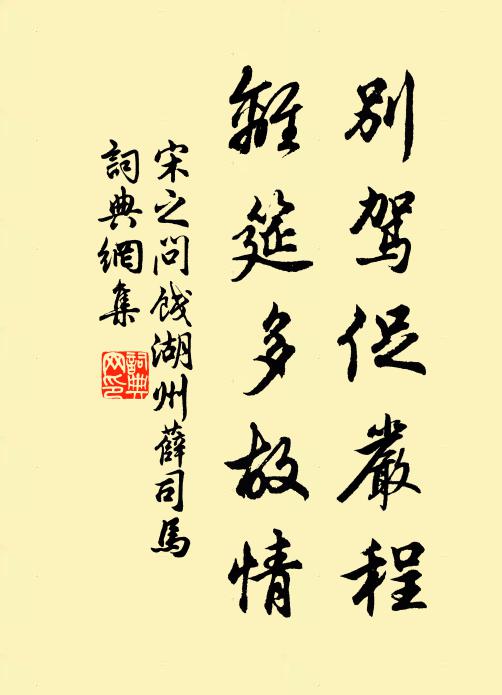 別駕促嚴程
離筵多故情
宋之问餞湖州薛司馬
詞典網集
詞典
网印